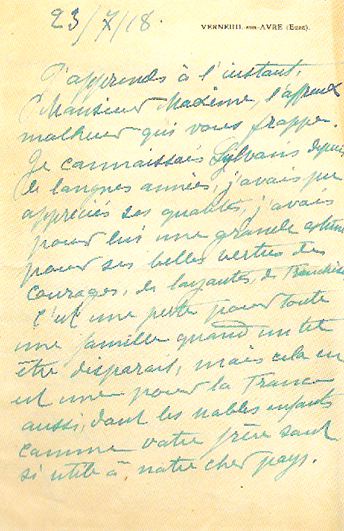 23/7/18.
VERNEUIL-SUR-AVRE (Eure).
J'apprends à l'instant,
Monsieur Madame, l'affreux
malheur qui vous frappe.
Je connaissais Sylvain depuis
de longues années, j'avais pu
appréciés ses qualités, j'avais
pour lui une grande estime
pour ses belles vertus de
courages, de loyautés, de franchise
C'est une perte pour toute
une famille quand un tel
être disparait, mais cela en
est une pour la France
aussi, dont les nobles enfants
comme votre frère sont
si utile à notre cher pays.